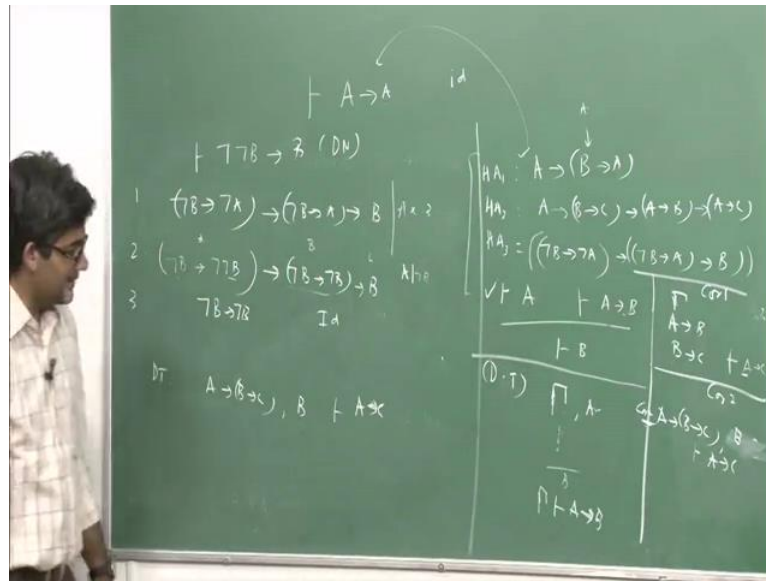 ⊢ A→A id
⊢ ¬¬B → B (DN)
1 (¬B→¬A) →(¬B→A)→ B
2 (¬B → ¬¬B) → (¬B→¬B)→B
3 ¬B→¬B Id
DT A→(B→C), B ⊢ A→C
A
HA₁ : A→(B→A)
HA₂ : A→(B→C)→(A→B)→(A→C)
HA₃ = ((¬B→¬A) →((¬B→A)→B))
✓⊢ A ⊢ A→B
⊢ B
(D.T)
Γ, A
B
Γ⊢A→B
Cor1
Γ
A→B
B→C ⊢ A→C
Cor2
A→(B→C), B
⊢ A→C